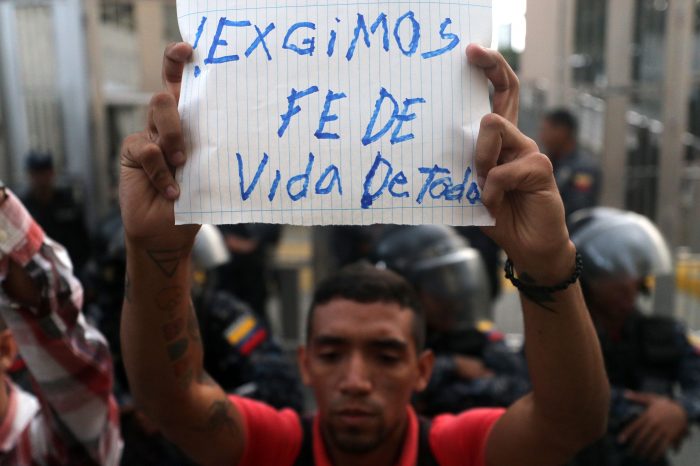 ¡EXgiMos
FE DE
Vida De Todos